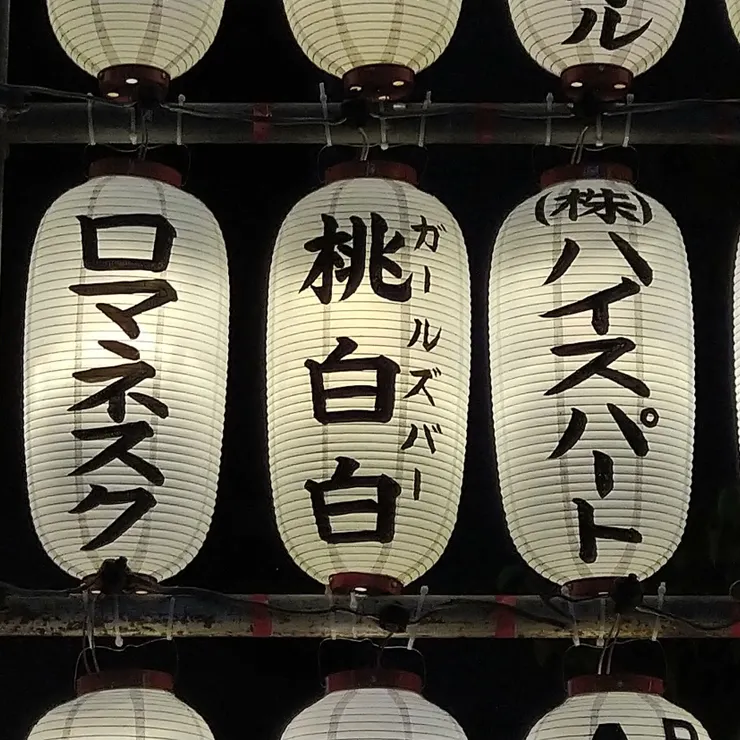 ル
ロマネスク
ガールズバー
桃白白
(株)ハイスパート